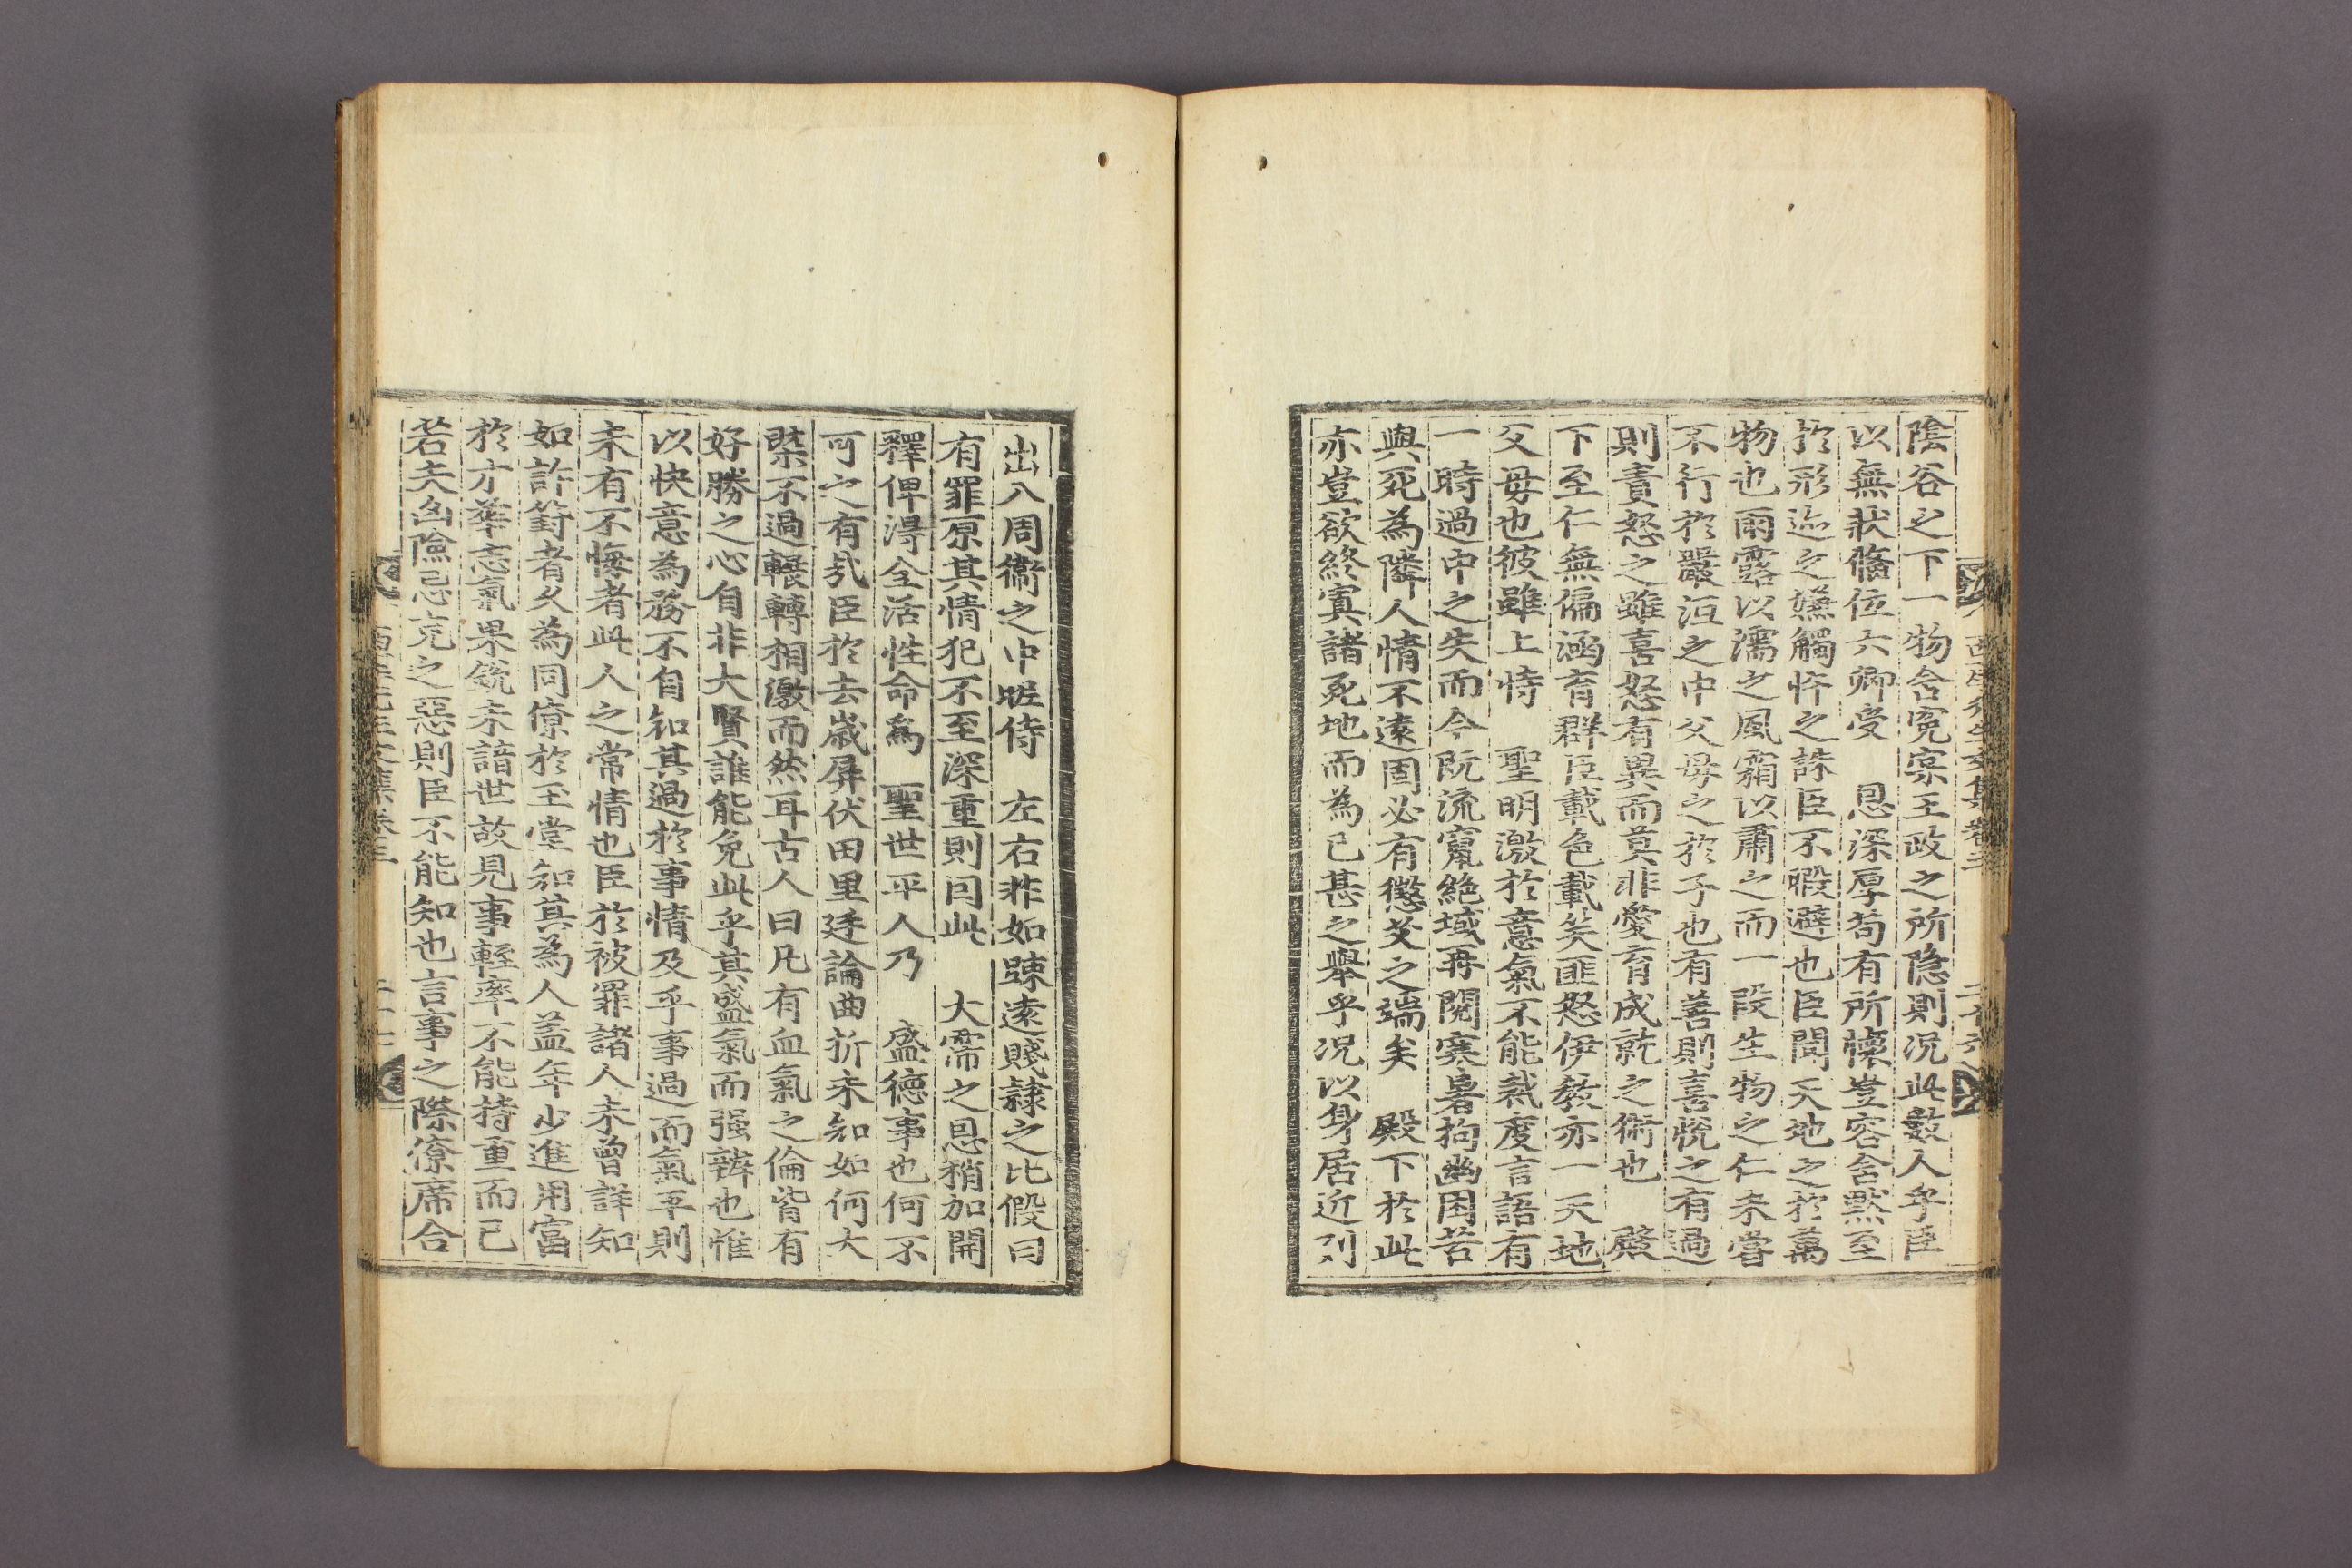 陰谷之下一物含寃宲王政之所隱則况此數人乎臣
以無狀脩位六卿受　恩深厚苟有所懷豈容含默至
於形迹之嫌觸忤之誅臣不暇避也臣聞天地之於萬
物也雨露以濡之風霜以肅之而一段生物之仁未嘗
不行於嚴沍之中父母之於子也有善則喜悅之有過
則責怒之雖喜怒有異而莫非愛育成就之術也　殿
下至仁無偏涵育群臣載色載笑匪怒伊敎亦一天地
父母也彼雖上恃　聖明激於意氣不能裁度言語有
一時過中之失而今阮流竄絶域再閱寒暑拘幽困苦
與死為隣人情不遠固必有懲艾之端矣　殿下於此
亦豈欲終寘諸死地而為已甚之舉乎况以身居近列
西厓先生文集卷三　二十六
出入周衛之中昵侍　左右非如踈遠賤隷之比假曰
有罪原其情犯不至深重則囙此　大霈之恩稍加開
釋俾得全活性命爲　聖世平人乃　盛德事也何不
可之有㢤臣於去歲屏伏田里廷論曲折未知如何大
槩不過輾轉相激而然耳古人曰凡有血氣之倫皆有
好勝之心自非大賢誰能免此乎其盛氣而强辨也惟
以快意為務不自知其過於事情及乎事過而氣平則
未有不悔者此人之常情也臣於被罪諸人未曾詳知
如許篈者久為同僚於玉堂知其為人盖年少進用富
於才華志氣果銳未諳世故見事輕率不能持重而已
若夫凶險忌克之惡則臣不能知也言事之際僚席合
西厓先生文集卷三